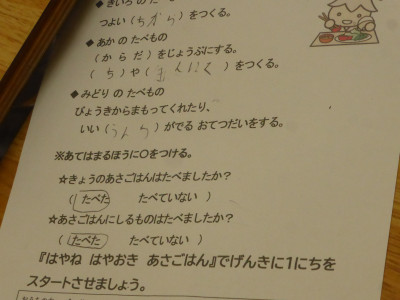 ◆ きいろ の たべもの
つよい(ちから)をつくる。
◆ あか の たべもの
(からだ)をじょうぶにする。
(ち)や(きんにく)をつくる。
◆ みどり の たべもの
びょうきからまもってくれたり、
いい(うんち)がでる おてつだいをする。
※あてはまるほうに○をつける。
☆きょうのあさごはんはたべましたか?
( たべた たべていない )
☆あさごはんにしるものはたべましたか?
( たべた たべていない )
『はやね はやおき あさごはん』でげんきに1にちを
スタートさせましょう。